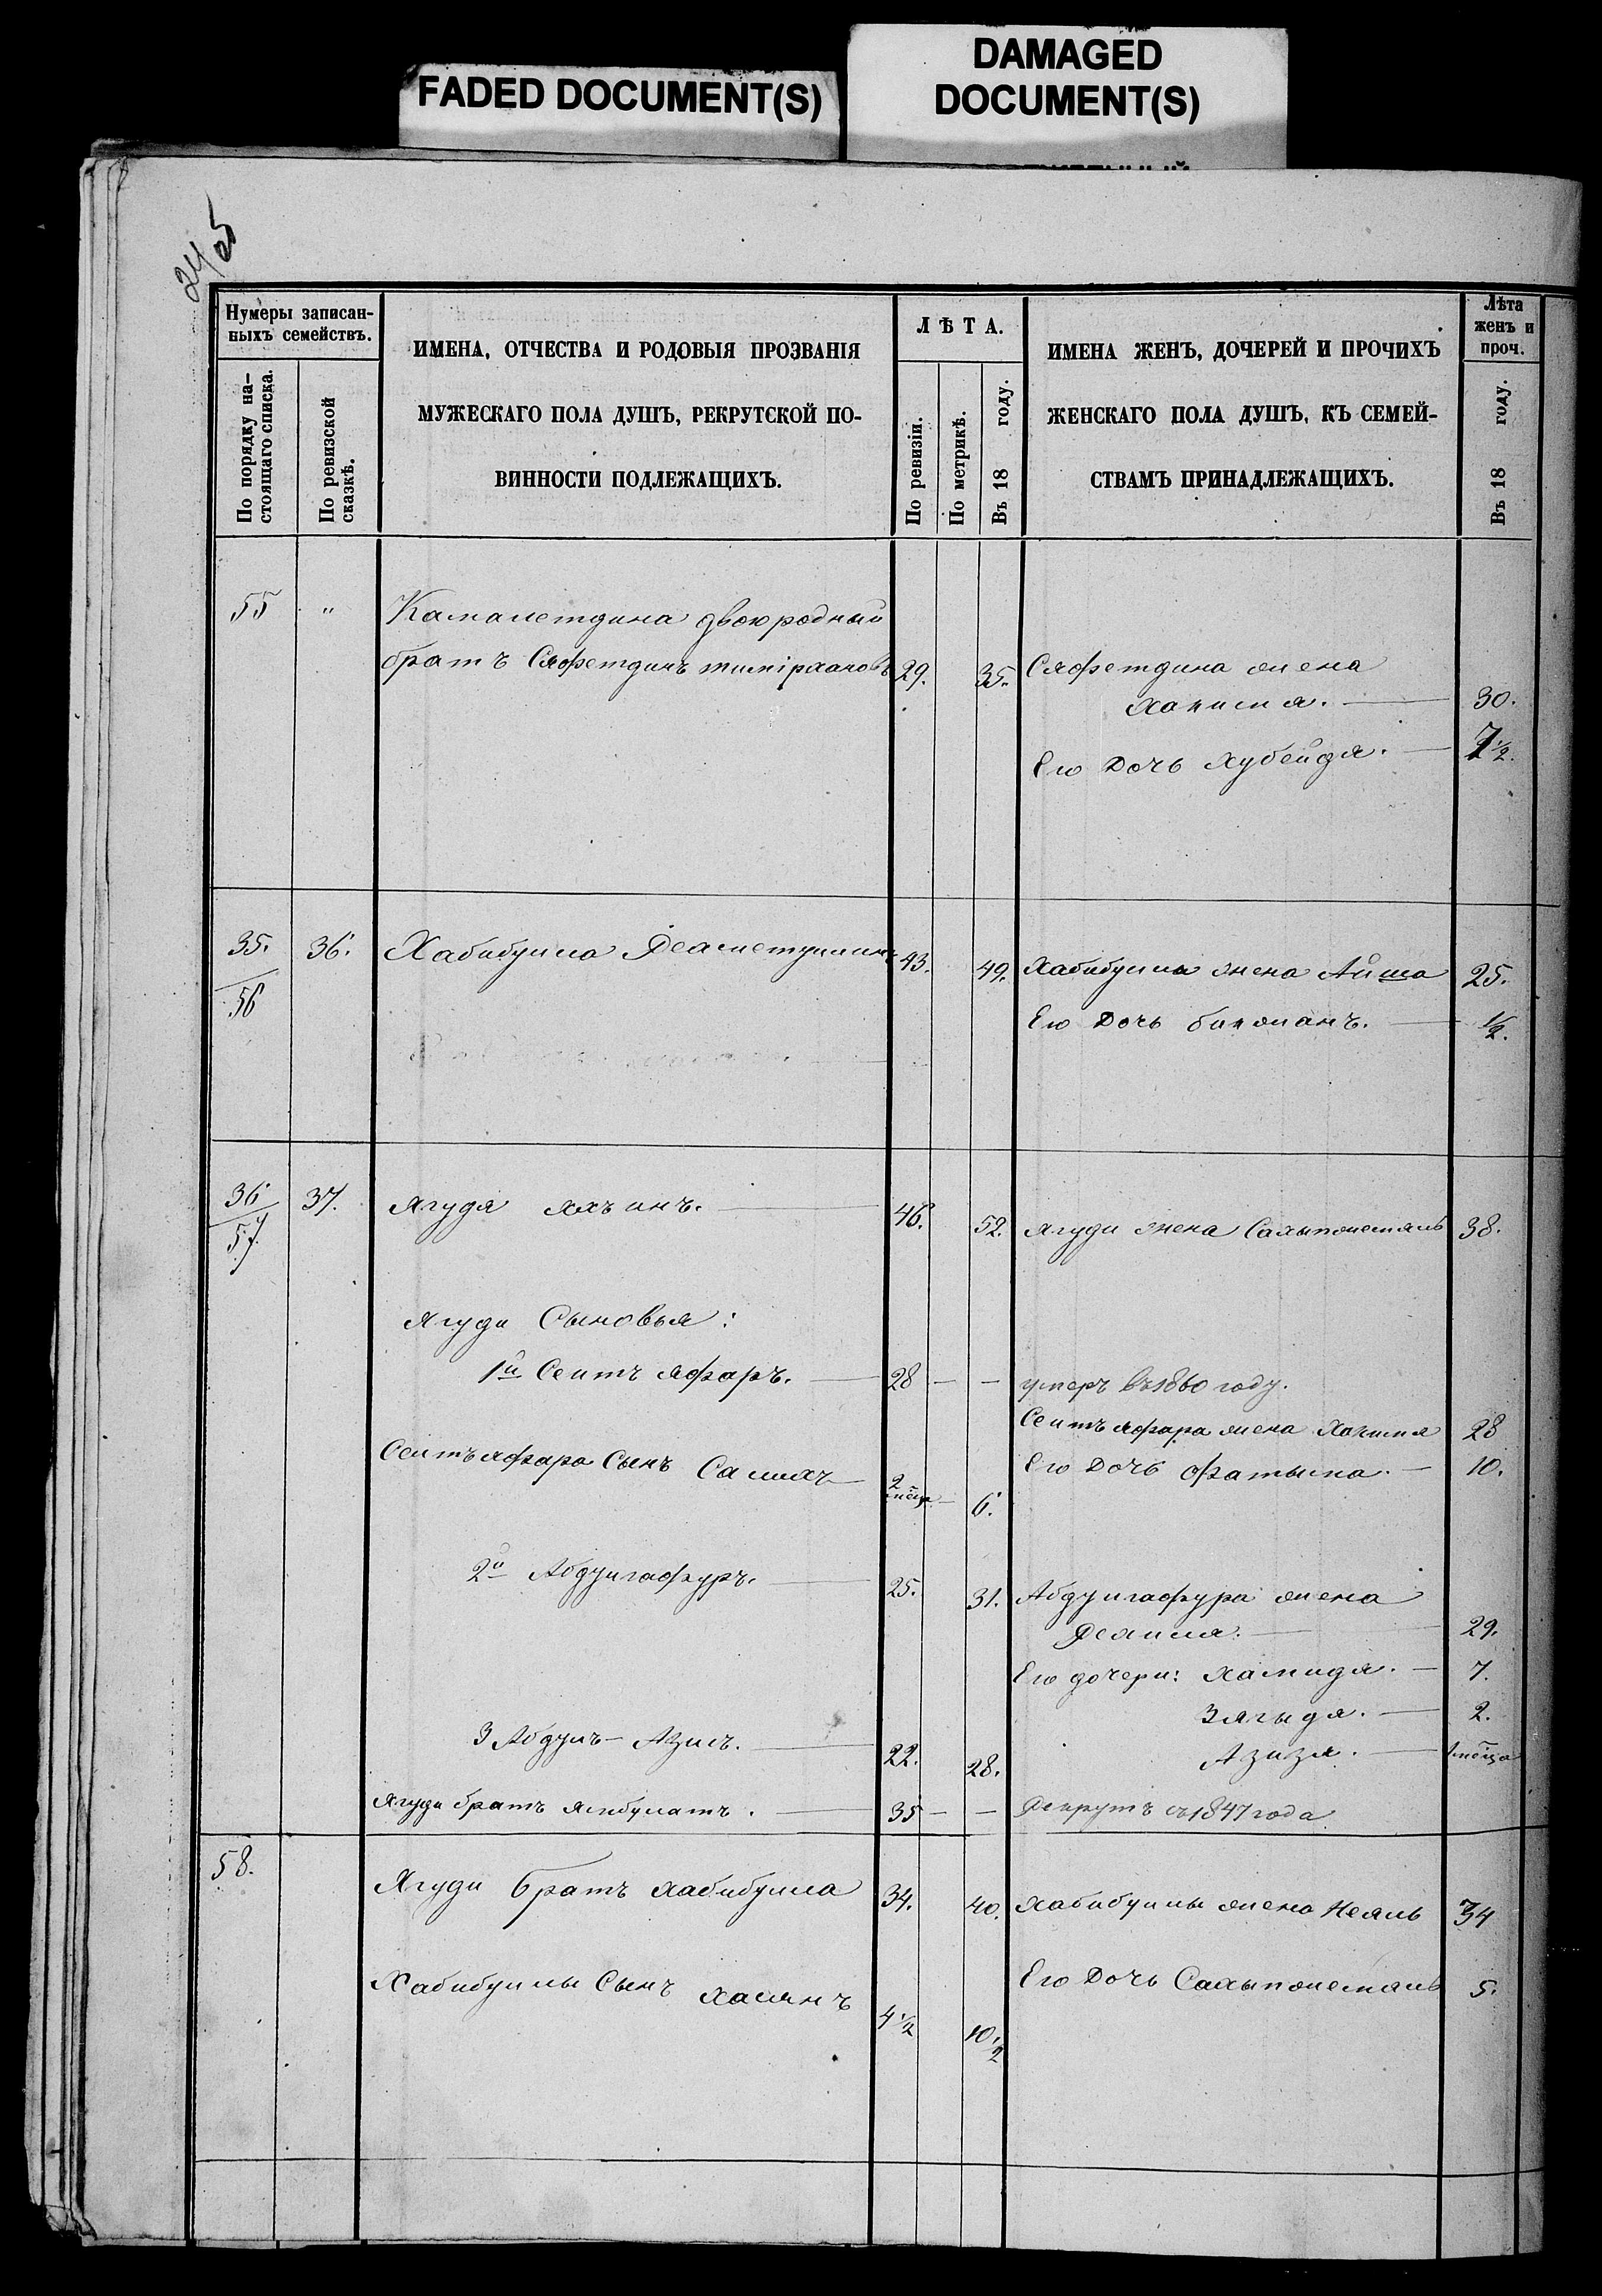 FADED DOCUMENT(S)
DAMAGED
DOCUMENT(S)
Нумеры записан-
ныхъ семействъ.
По порядку на-
стоящаго списка.
По ревизской
сказкѣ.
ИМЕНА, ОТЧЕСТВА И РОДОВЫЯ ПРОЗВАНІЯ
МУЖЕСКАГО ПОЛА ДУШЪ, РЕКРУТСКОЙ ПО-
ВИННОСТИ ПОДЛЕЖАЩИХЪ.
ЛѢТА.
По ревизіи.
По метрикѣ.
Въ 18 году.
ИМЕНА ЖЕНЪ, ДОЧЕРЕЙ И ПРОЧИХЪ
ЖЕНСКАГО ПОЛА ДУШЪ, КЪ СЕМЕЙ-
СТВАМЪ ПРИНАДЛЕЖАЩИХЪ.
Лѣта
женъ и
проч.
Въ 18 году.
55 " Камалетдина двоюродный
братъ Сяфетдинъ 29. 35. Сяфетдина жена
Халиля. 30.
Его Дочь Хубейдя. 7½.
35. 36. Хабибулла 43. 49. Хабибуллы жена Айша 25.
56
Его Дочь ½.
36 37. Ягудя Яхъинъ. 46. 52. Ягуди жена 38.
57.
Ягуди Сыновья:
1й Сеитъ Яфаръ. 28 — — умеръ въ 1860 году.
Сеитъ Яфара жена 28
Сеитъ Яфара Сынъ 2 мѣсяц. — 6. Его Дочь Фатыма. — 10.
2й Абдулгафуръ. 25. 31. Абдулгафура жена
29.
Его дочери: Хамидя. — 7.
Зягидя. — 2.
3 Абдулъ-Азисъ. 22. 28. Азизя. — 1 мѣсяца
Ягуди братъ Ямбулатъ. 35 — — Рекрутъ съ 1847 года
58. Ягуди братъ Хабибулла 34. 40. Хабибуллы жена 34
Хабибуллы Сынъ Хасянъ 4½ 10½ Его Дочь 5.